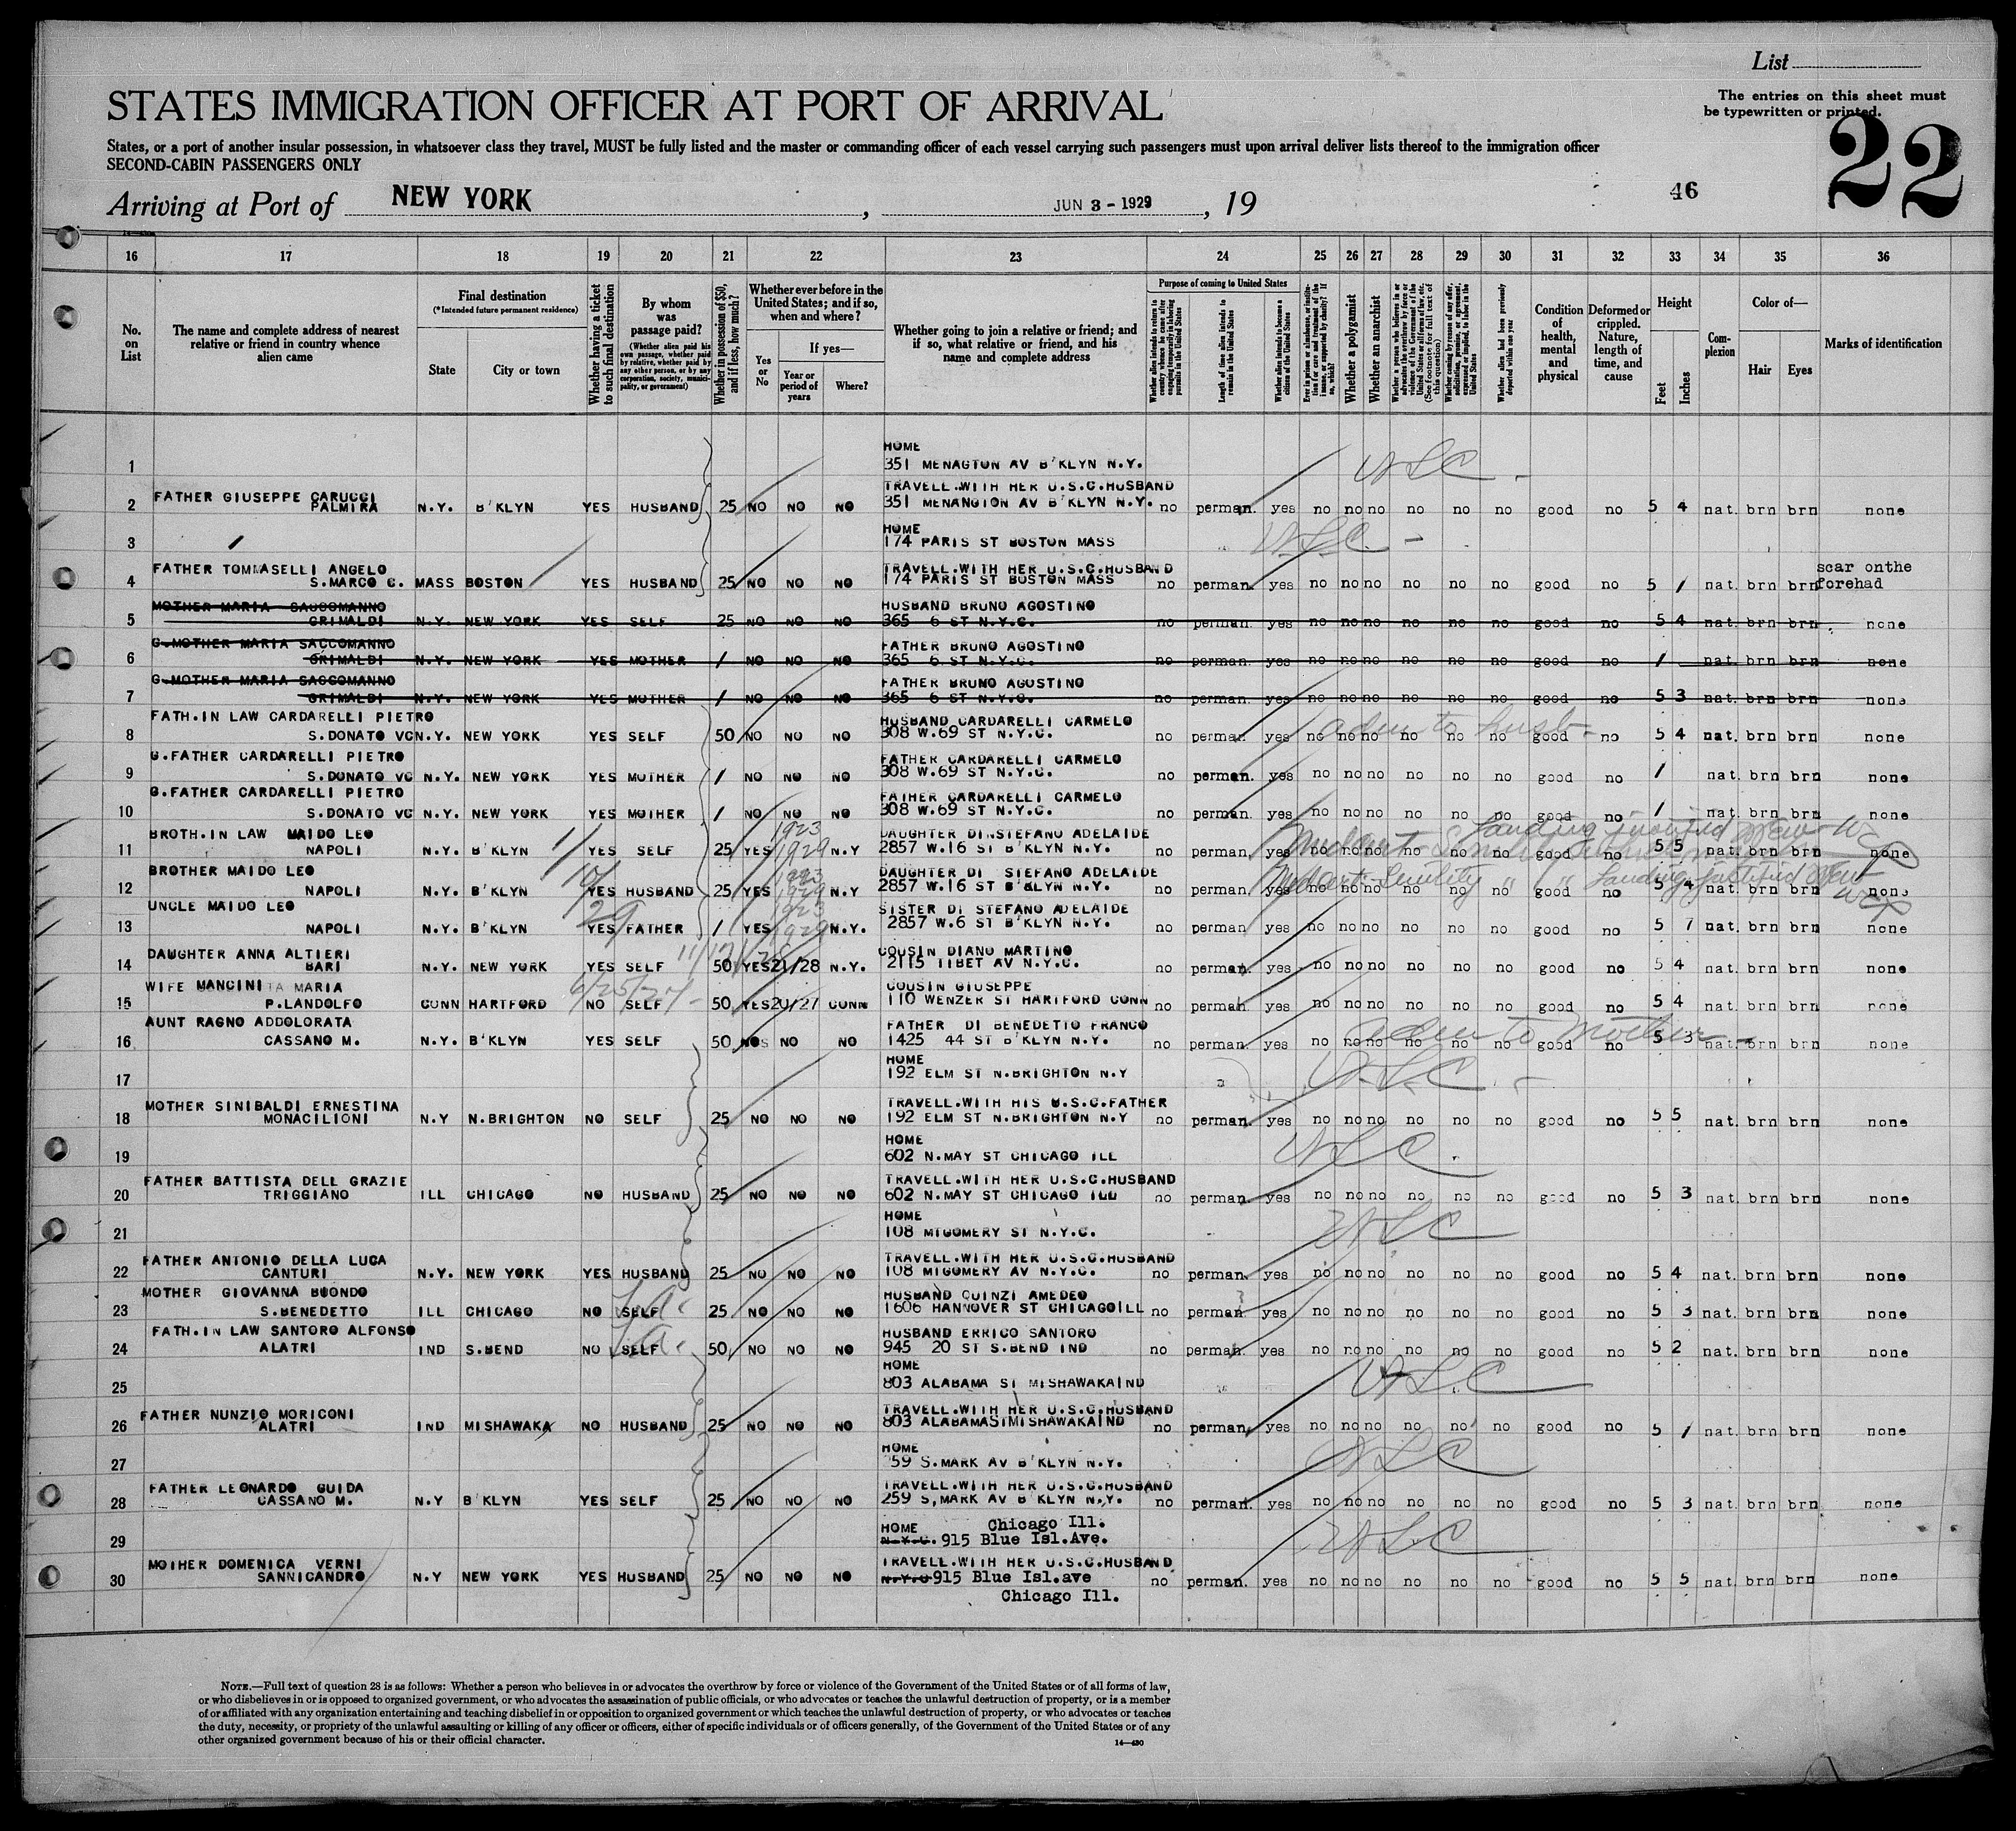 List
STATES IMMIGRATION OFFICER AT PORT OF ARRIVAL
The entries on this sheet must
be typewritten or printed.
States, or a port of another insular possession, in whatsoever class they travel, MUST be fully listed and the master or commanding officer of each vessel carrying such passengers must upon arrival deliver lists thereof to the immigration officer
SECOND-CABIN PASSENGERS ONLY
22
46
Arriving at Port of NEW YORK, JUN 3 - 1929, 19
16 17 18 19 20 21 22 23 24 25 26 27 28 29 30 31 32 33 34 35 36
No. on List
The name and complete address of nearest relative or friend in country whence alien came
Final destination
(*Intended future permanent residence)
State
City or town
Whether having a ticket to such final destination
By whom was passage paid?
(Whether alien paid his own passage, whether paid by relative, whether paid by any other person, or by any corporation, society, municipality, or government)
Whether in possession of $50, and if less, how much?
Whether ever before in the United States; and if so, when and where?
Yes or No
If yes—
Year or period of years
Where?
Whether going to join a relative or friend; and if so, what relative or friend, and his name and complete address
Purpose of coming to United States
Length of time alien intends to remain in the United States
Whether alien intends to become a citizen of the United States
Whether a polygamist
Whether an anarchist
Condition of health, mental and physical
Deformed or crippled. Nature, length of time, and cause
Height
Feet
Inches
Complexion
Color of—
Hair
Eyes
Marks of identification
1 HOME
351 MENAGTON AV B'KLYN N.Y. USC
FATHER GIUSEPPE CARUCCI TRAVELL.WITH HER U.S.C.HUSBAND
2 PALMIRA N.Y. B'KLYN YES HUSBAND 25 NO NO NO 351 MENANGTON AV B'KLYN N.Y. no perman. yes no no no no no no good 5 4 nat. brn brn none
HOME
3 174 PARIS ST BOSTON MASS USC
FATHER TOMMASELLI ANGELO TRAVELL.WITH HER U.S.C.HUSBAND scar onthe
4 S.MARCO C. MASS BOSTON YES HUSBAND 25 NO NO NO 174 PARIS ST BOSTON MASS no perman. yes no no no no no no good no 5 1 nat. brn brn forehad
MOTHER MARIA SACCOMANNO HUSBAND BRUNO AGOSTINO
5 GRIMALDI N.Y. NEW YORK YES SELF 25 NO NO NO 365 6 ST N.Y.C. no perman. yes no no no no no no good no 5 4 nat. brn brn none
G.MOTHER MARIA SACCOMANNO FATHER BRUNO AGOSTINO
6 GRIMALDI N.Y. NEW YORK YES MOTHER / NO NO NO 365 6 ST N.Y.C. no perman. yes no no no no no no good no / nat. brn brn none
G.MOTHER MARIA SACCOMANNO FATHER BRUNO AGOSTINO
7 GRIMALDI N.Y. NEW YORK YES MOTHER / NO NO NO 365 6 ST N.Y.C. no perman. yes no no no no no no good no 5 3 nat. brn brn none
FATH.IN LAW CARDARELLI PIETRO HUSBAND CARDARELLI CARMELO adm to husb-
8 S.DONATO VC N.Y. NEW YORK YES SELF 50 NO NO NO 308 W.69 ST N.Y.C. no perman. yes no no no no no no good no 5 4 nat. brn brn none
G.FATHER CARDARELLI PIETRO FATHER CARDARELLI CARMELO
9 S.DONATO VC N.Y. NEW YORK YES MOTHER / NO NO NO 308 W.69 ST N.Y.C. no perman. yes no no no no no no good no / nat. brn brn none
G.FATHER CARDARELLI PIETRO FATHER CARDARELLI CARMELO
10 S.DONATO VC N.Y. NEW YORK YES MOTHER / NO NO NO 308 W.69 ST N.Y.C. no perman. yes no no no no no no good no / nat. brn brn none
BROTH.IN LAW MAIDO LEO 1923 DAUGHTER DI STEFANO ADELAIDE
11 NAPOLI N.Y. B'KLYN YES SELF 25 YES 1929 N.Y 2857 W.16 ST B'KLYN N.Y. no perman. yes no no no no no no good no 5 5 nat. brn brn none
BROTHER MAIDO LEO 1923 DAUGHTER DI STEFANO ADELAIDE Landing justified
12 NAPOLI N.Y. B'KLYN YES HUSBAND 25 YES 1929 N.Y 2857 W.16 ST B'KLYN N.Y. no perman. yes no no no no no no good no 5 4 nat. brn brn none
UNCLE MAIDO LEO 1923 SISTER DI STEFANO ADELAIDE
13 NAPOLI N.Y. B'KLYN YES FATHER / YES 1929 N.Y. 2857 W.6 ST B'KLYN N.Y. no perman yes no no no no no no good no 5 7 nat. brn brn none
DAUGHTER ANNA ALTIERI COUSIN DIANO MARTINO
14 BARI N.Y. NEW YORK YES SELF 50 YES 21/28 N.Y. 2115 TIBET AV N.Y.C. no perman. yes no no no no no no good no 5 4 nat. brn brn none
WIFE MANCINITA MARIA 6/25/27- COUSIN GIUSEPPE
15 P.LANDOLFO CONN HARTFORD NO SELF 50 YES 20/27 CONN 110 WENZER ST HARTFORD CONN no perman. yes no no no no no no good no 5 4 nat. brn brn none
AUNT RAGNO ADDOLORATA FATHER DI BENEDETTO FRANCO adm to mother-
16 CASSANO M. N.Y. B'KLYN YES SELF 50 NO NO 1425 44 ST B'KLYN N.Y. no perman. yes no no no no no no good no 5 3 nat. brn brn none
HOME
17 192 ELM ST N.BRIGHTON N.Y USC
MOTHER SINIBALDI ERNESTINA TRAVELL.WITH HIS U.S.C.FATHER
18 MONACILIONI N.Y N.BRIGHTON NO SELF 25 NO NO NO 192 ELM ST N.BRIGHTON N.Y no perman. yes no no no no no no good no 5 5 nat. brn brn none
HOME
19 602 N.MAY ST CHICAGO ILL USC
FATHER BATTISTA DELL GRAZIE TRAVELL.WITH HER U.S.C.HUSBAND
20 TRIGGIANO ILL CHICAGO NO HUSBAND 25 NO NO NO 602 N.MAY ST CHICAGO ILL no perman. yes no no no no no no good no 5 3 nat. brn brn none
HOME
21 108 MTGOMERY ST N.Y.C. USC
FATHER ANTONIO DELLA LUCA TRAVELL.WITH HER U.S.C.HUSBAND
22 CANTURI N.Y. NEW YORK YES HUSBAND 25 NO NO NO 108 MTGOMERY AV N.Y.C. no perman. yes no no no no no no good no 5 4 nat. brn brn none
MOTHER GIOVANNA BUONDO HUSBAND QUINZI AMEDEO
23 S.BENEDETTO ILL CHICAGO NO SELF 25 NO NO NO 1606 HANNOVER ST CHICAGOILL no perman yes no no no no no no good no 5 3 nat. brn brn none
FATH.IN LAW SANTORO ALFONSO HUSBAND ERRICO SANTORO
24 ALATRI IND S.BEND NO SELF 50 NO NO NO 945 20 ST S.BEND IND no perman. yes no no no no no no good no 5 2 nat. brn brn none
HOME
25 803 ALABAMA ST MISHAWAKAIND USC
FATHER NUNZIO MORICONI TRAVELL.WITH HER U.S.C.HUSBAND
26 ALATRI IND MISHAWAKA NO HUSBAND 25 NO NO NO 803 ALABAMASTMISHAWAKAIND no perman. yes no no no no no no good no 5 1 nat. brn brn none
HOME
27 59 S.MARK AV B'KLYN N.Y. USC
FATHER LEONARDO GUIDA TRAVELL.WITH HER U.S.C.HUSBAND
28 CASSANO M. N.Y B'KLYN YES SELF 25 NO NO NO 259 S,MARK AV B'KLYN N.Y. no perman. yes no no no no no no good no 5 3 nat. brn brn none
HOME Chicago Ill.
29 N.Y.C. 915 Blue Isl.Ave. USC
MOTHER DOMENICA VERNI TRAVELL.WITH HER U.S.C.HUSBAND
30 SANNICANDRO N.Y NEW YORK YES HUSBAND 25 NO NO NO N.Y.C 915 Blue Isl.ave no perman. yes no no no no no no good no 5 5 nat. brn brn none
Chicago Ill.
NOTE.—Full text of question 28 is as follows: Whether a person who believes in or advocates the overthrow by force or violence of the Government of the United States or of all forms of law,
or who disbelieves in or is opposed to organized government, or who advocates the assassination of public officials, or who advocates or teaches the unlawful destruction of property, or is a member
of or affiliated with any organization entertaining and teaching disbelief in or opposition to organized government or which teaches the unlawful destruction of property, or who advocates or teaches
the duty, necessity, or propriety of the unlawful assaulting or killing of any officer or officers, either of specific individuals or of officers generally, of the Government of the United States or of any
other organized government because of his or their official character.
14—430